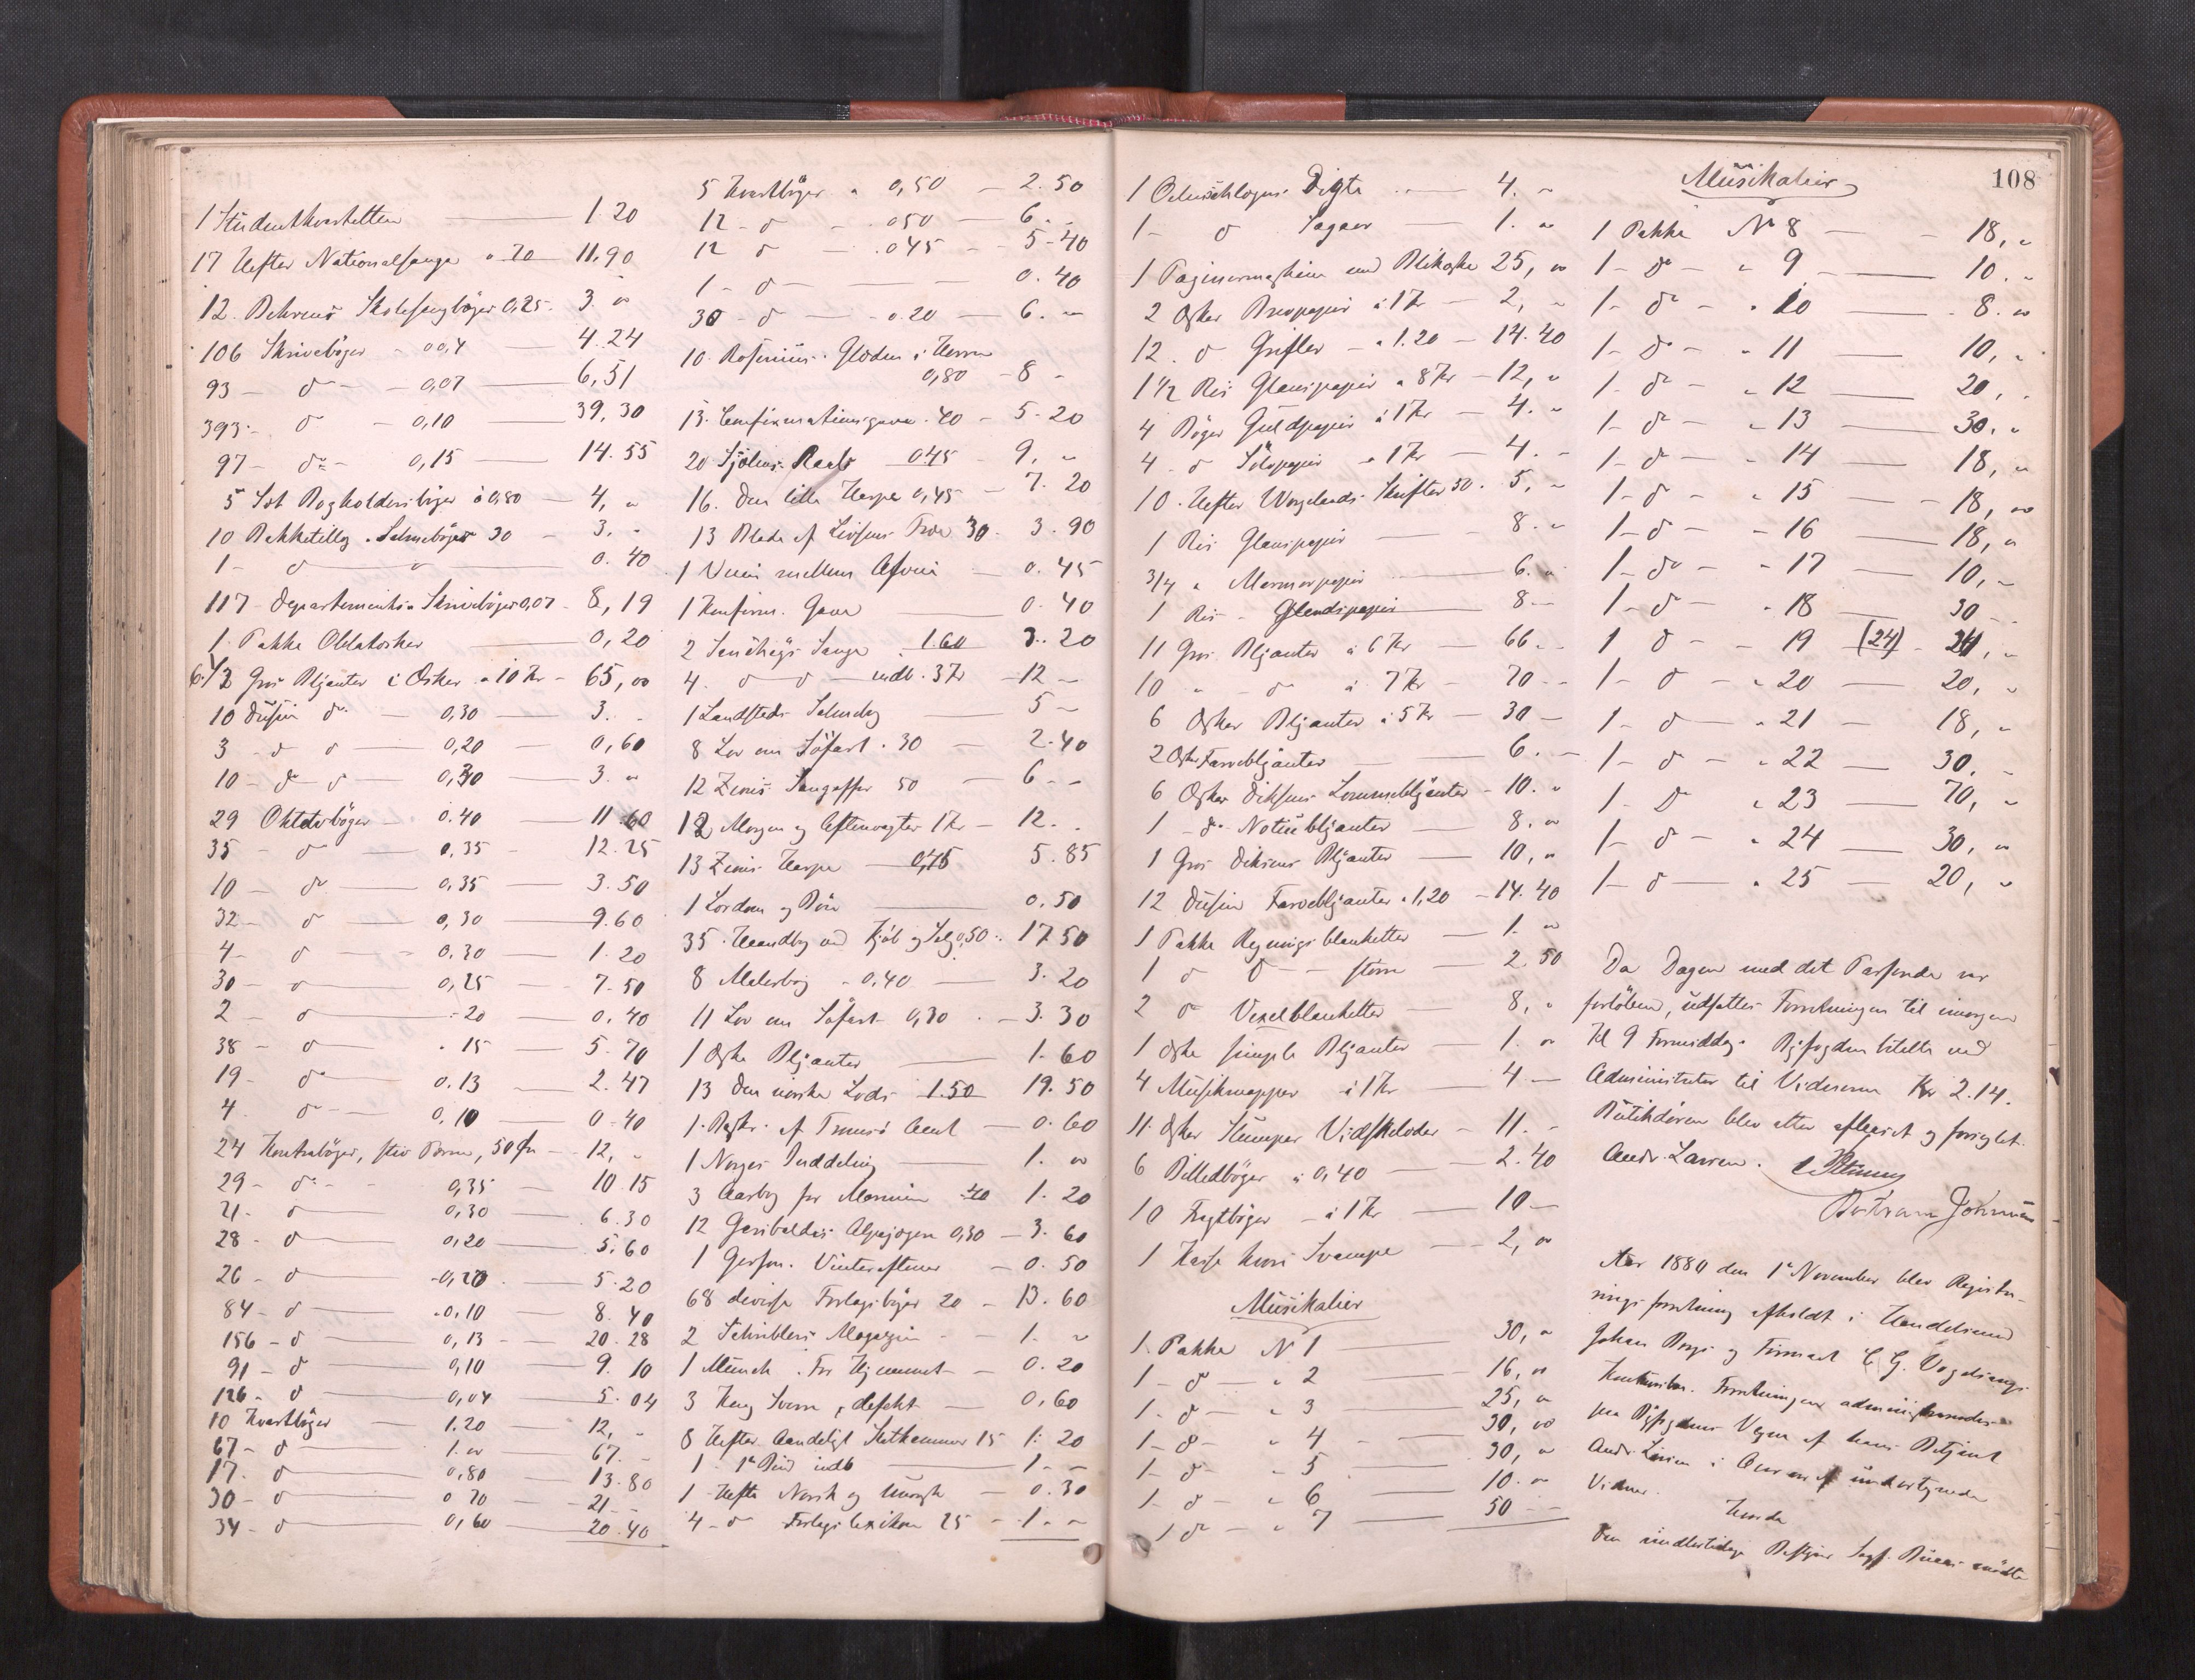 1 Studentkvartetten 1.20
17 Hefter Nationalsange a 70 11,90
12 Behrens Skolesangbøger 0,25 3.
106 Skrivebøger 4.24
93 - do - 0,07 6,51
393 - do - 0,10 39,30
97 - do - 0,15 14.55
5 Bogholderibøger à 0,80 4,
10 Pakketillæg Salmebøger 30 3.
1 - do 0.40
117 Departements Skrivebøger 0,07 8,19
1 Pakke Oblatæsker 0,20
6 1/2 Gros Bljanter i Æsker a 10 Kr 65,
10 Dusin do 0,30 3.
3 - do do 0,20 0,60
10 - do do 0,30 3.
29 Oktavbøger 0.40 11.60
35 - do 0,35 12.25
10 - do 0,35 3.50
32 - do 0,30 9.60
4 - do 0.30 1.20
30 - do 0,25 7.50
2 - do 20 0.40
38 - do 15 5.70
19 - do 0.13 2.47
4 do 0,10 0.40
24 Kontrabøger, stiv Perm, 50 Øre 12,
29 - do 0,35 10.15
21 - do 0,30 6.30
28 - do 0,20 5.60
26 - do 0,20 5.20
84 - do 0,10 8.40
156 - do 0,13 20.28
91 - do 0,10 9.10
126 - do 0,04 5.04
10 Kvartbøger 1.20 12,
67 - do 1. 67.
17 - do 0,80 13.80
30 - do 0 70 21
34 - do 0,60 20.40
5 Kvartbøger a 0,50 2.50
12 - do 050 6.
12 do 045 5-40
1 - do 0.40
30 - do 0.20 6.
10 Rosenius Glæden i Herren
0,80 8
13 Confirmationsgave 40 5.20
20 045 9,
16 Den lille Harpe 0,45 7.20
13 Blade af Livsens Træ 30 3.90
1 mellem 0.45
1 Konfirm. Gave 0.40
2 Sange 1.60 3.20
4 do do indb. 3 Kr 12
1 Landstads Salmebog 5
8 Lov om Søfart 30 2.40
12 Zions Sangoffer 50 6
12 Morgen og Aftenvægter 1 Kr 12.
13 Zions Harpe 0,45 5.85
1 Lørdom og Bøn 0.50
35 Haandbog ved Kjøb og Salg 0,50 17.50
8 Malerbog 0,40 3.20
11 Lov om Søfart 0,30 3.30
1 Æske Bljanter 1.60
13 Den norske Lods 1.50 19.50
1 af Tromsø Amt 0.60
1 Norges Inddeling 1.
3 Aarbog for 40 1.20
12 Garibaldis Alpejægere 0,30 3.60
1 Vinteraftener 0.50
68 diverse Forlagsbøger 20 13.60
2 Magazin 1.
1 Munch For Hjemmet 0.20
3 Kong Sverre, defekt 0,60
8 Hefter Aandeligt Skatkammer 15 1.20
1 1te Bind indb 1
1 Hefte Norsk og 0.30
4 - do lexikon 25 1
1 Oehlenschlægers Digte 4.
1 - do Sagaer 1.
1 Paginermaskine med Blikæske 25,
2 Æsker Brevpapir à 1 Kr 2,
12 do Grifler a 1.20 14.40
1 1/2 Ris Glanspapir a 8 Kr 12,
4 Bøger Guldpapir à 1 Kr 4.
4 do Sølvpapir à 1 Kr 4.
10 Hefter Wergelands Skrifter 50 5,
1 Ris Glanspapir 8.
3/4 " Marmorpapir 6.
1 Ris Glandspapir 8
11 Gros Bljanter à 6 Kr 66
10 " - do à 7 Kr 70
6 Æsker Bljanter à 5 Kr 30
2 Æsker Farvebljanter 6.
6 Æsker Diksons Lommebljanter 10.
1 - do Notitsbljanter 8.
1 Gros Diksons Bljanter 10,
12 Dusin Farvebljanter a 1,20 14.40
1 Pakke Regningsblanketter 1.
1 do do større 2.50
2 do Vexelblanketter 8,
1 Æske simple Bljanter 1.
4 Musikmapper à 1 Kr 4
11 Æsker Viskelæder 11.
6 Billedbøger à 0,40 2.40
10 Fragtbøger à 1 Kr 10
1 Kasse Svampe 2,
Musikalier
1 Pakke N 1 30,
1 - do " 2 16,
1 - do " 3 25,
1 - do " 4 30,
1 - do " 5 30,
1 - do " 6 10.
1 do " 7 50
Musikalier
108
1 Pakke No 8 18,
1 - do " 9 10.
1 - do " 10 8.
1 - do " 11 10,
1 - do " 12 20,
1 - do " 13 30.
1 - do " 14 18,
1 - do " 15 18,
1 - do - 16 18,
1 - do - 17 10,
1 - do " 18 30
1 do - 19 (24) 24,
1 - do " 20 20,
1 - do " 21 18,
1 - do " 22 30.
1 - do " 23 70,
1 - do " 24 30,
1 - do " 25 20,
Da Dagen med det Passerede var
forløben, udsattes Forretningen til imorgen
Kl 9 Formiddag. Byfogden bilagte ved
Administrator til Vidnerne Kr 2.14.
Butikdøren blev atter aflaaset og forseglet.
Andr. Larsen.
Aar 1880 den 1te November blev Registre-
ringsforretning afholdt i Handelsmand
Johan og Firmaet C. G.
Konkursbo. Forretningen administreredes
paa Byfogdens Vegne af hans Betjent
Andr. Larsen i Overvær af undertegnede
Vidner.
Den midlertidige Bestyrer Sagf. mødte